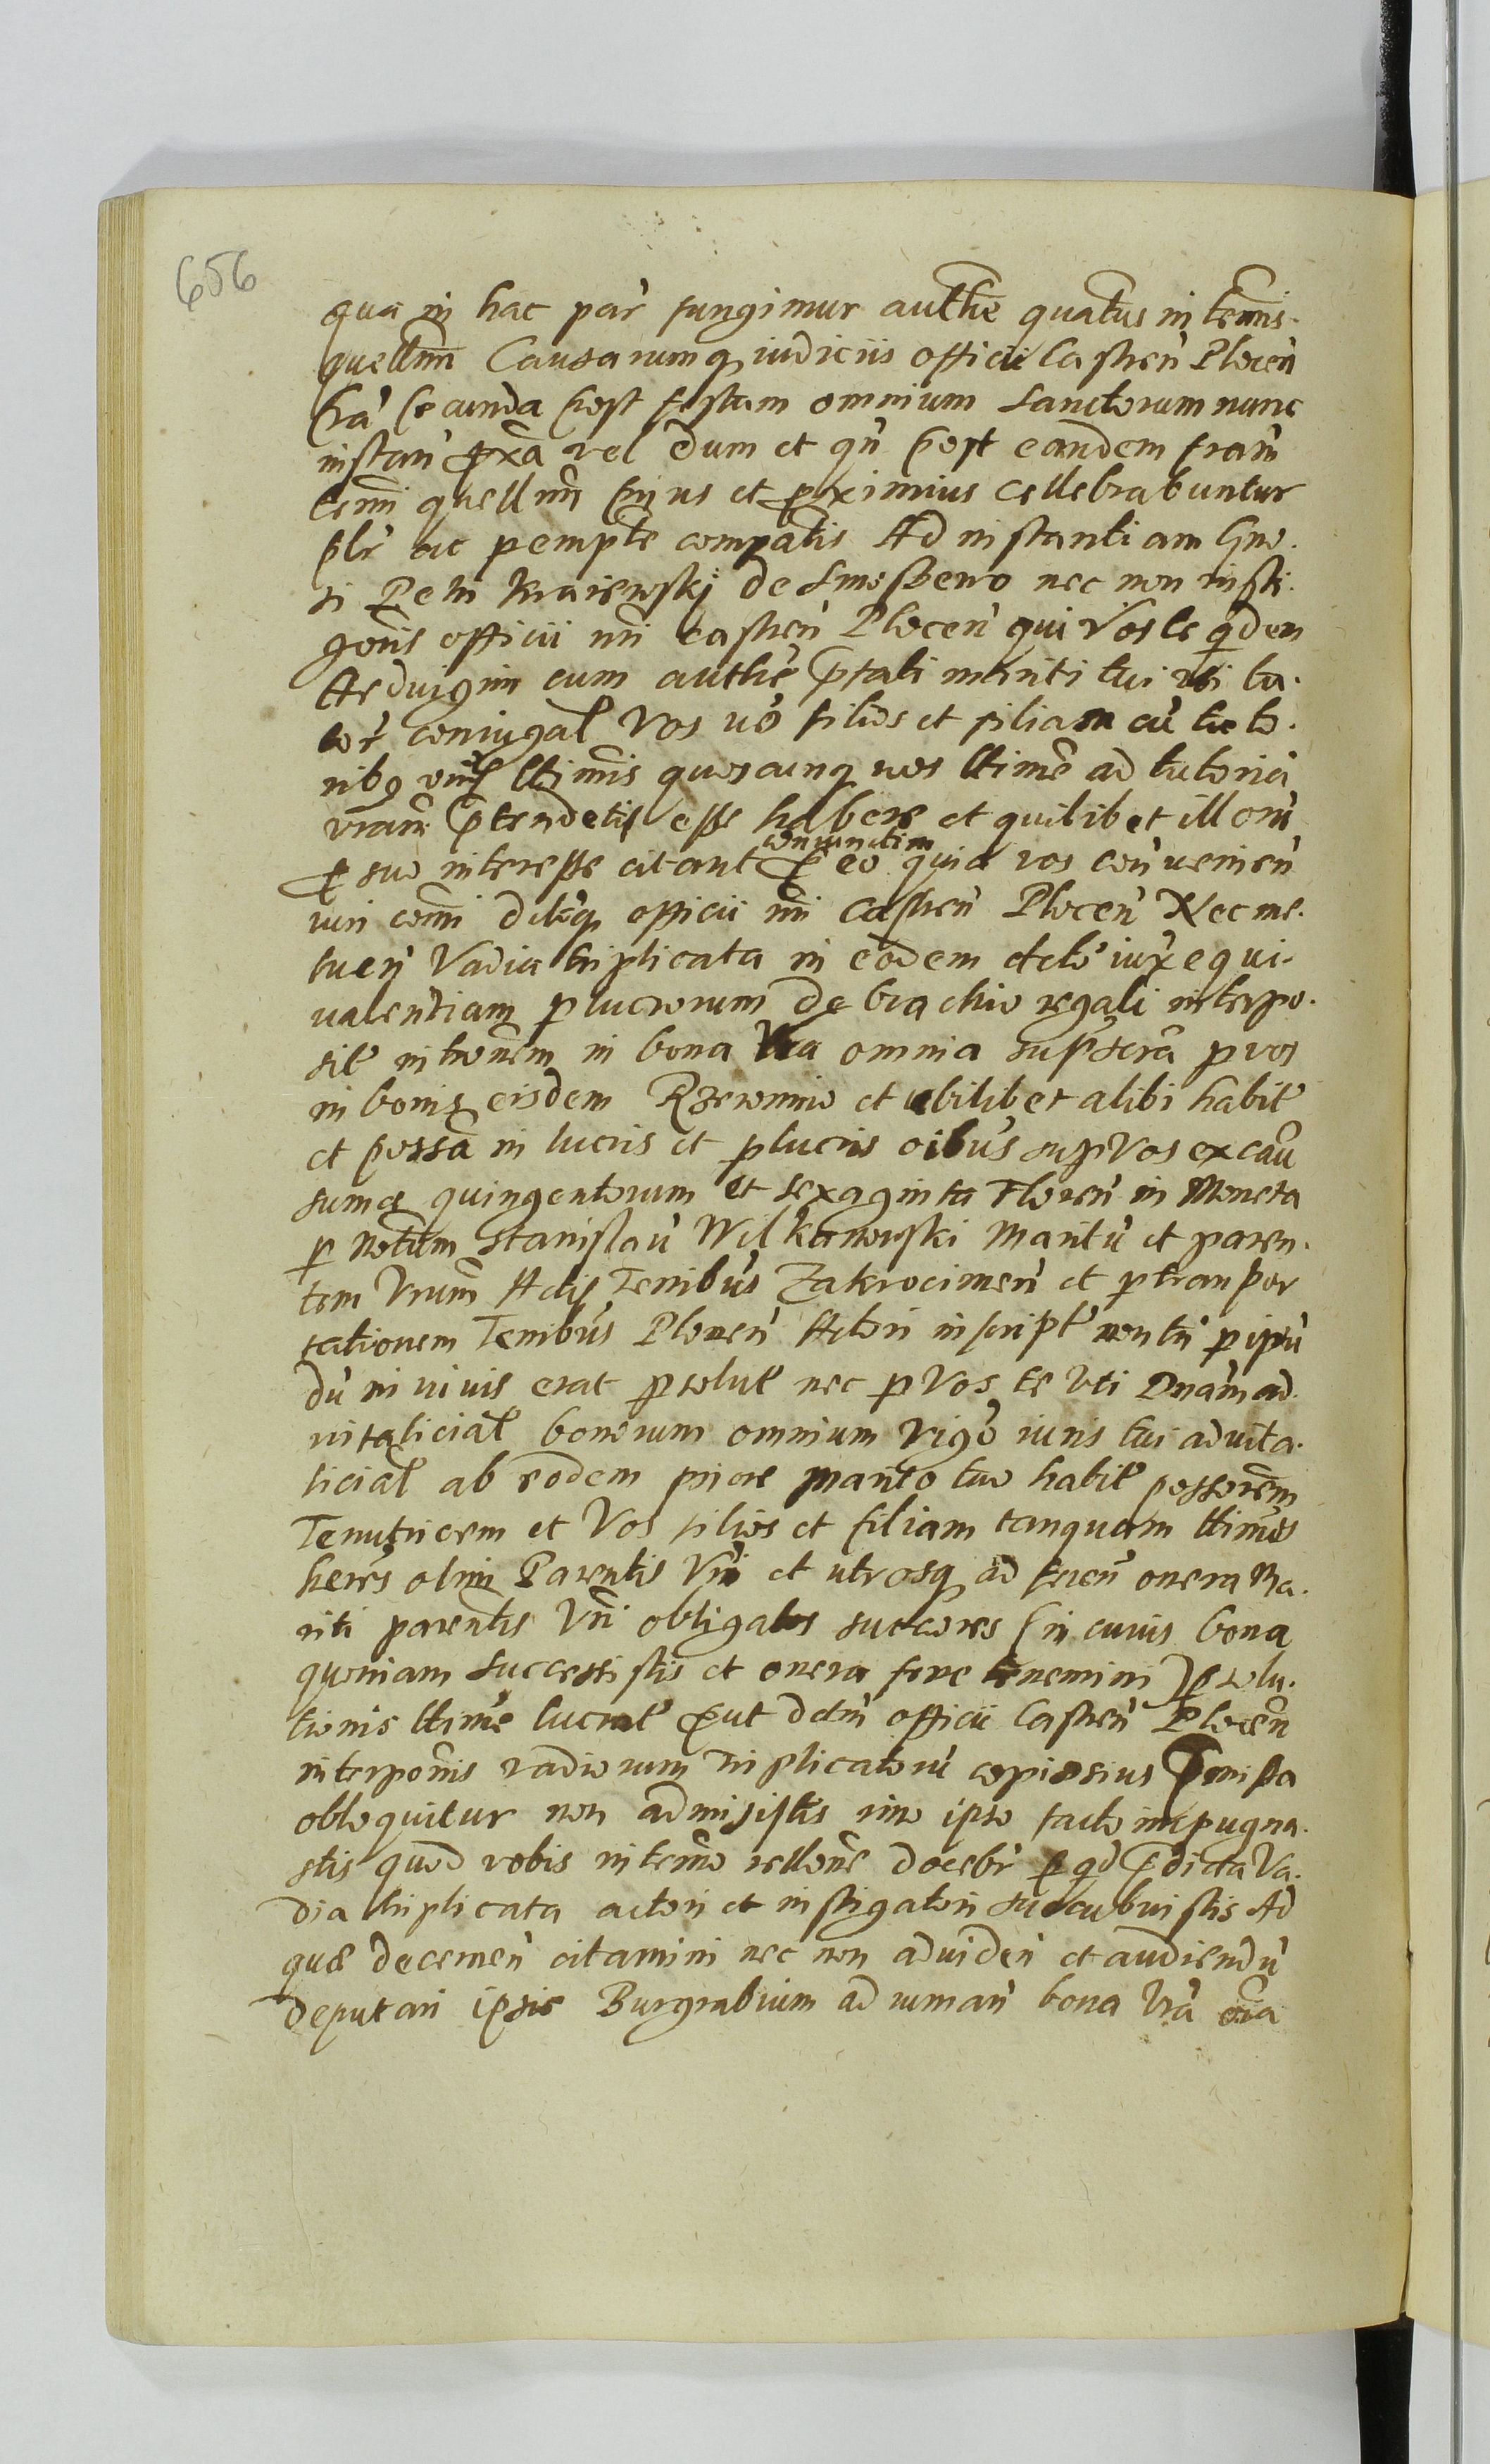 656
qua in hac par fungimur authe quatus in termis
quellim Causarumq iudiciis officii Castren Plocen
fra secunda post festum omnium Sanctorum nunc
instan pxa vel dum et qn post eandem fram
termi quellmi prius et proximius cellebrabuntur
plr ac pempte compatis Ad instantiam Gno.
si Petri Kraiewskj de nec non insti
goris officii nri castren Plocen qui Vos te qdem
Heduigim cum authe ptati mriti tui vti tu.
tor coniugal Vos vo filios et filiam cu tuto.
ribq vris ltimis quoscunq vos ltime ad tutoria
vram ptendetis esse habere et quilibet illoru
p suo interesse citant coniunctim p eo quia vos conuenien
iuri coni officii nri Castren Plocen Nec me.
tuen Vadia triplicata in eodem dcto iux equi.
ualentiam plucrorum de brachio regali interpo.
sit intronem in bona Vra omnia supscra p vos
in bonis eisdem et ubilibet alibi habit
et possa in lucris et plucris oibus sup Vos ex cau
suma quingentorum et sexaginta Floren in Moneta
p Notum Stanislau Wilkanowski Maritu et paren.
tem Vrum Actis Terribus Zakrocimen et p tranpor
tationem Terribus Plocen Actori inscript non tn p ipsu
du in viuis erat psolut nec p Vos te Vti Dnam ad.
uitalicial bonorum omnium vigo iuris tui aduita.
licial ab eodem priore marito tuo habit possorem
Tenutricem et Vos filios et filiam tanquam ltimos
heres olim Parentis Vri et utrosq ad feren onera Ma.
riti parentis Vri obligatos succores (in cuius bona
quoniam successistis et onera ferre tenemini) psolu.
tionis ltime lucrat put dctm officii Castren Plocen
interponis vadiorum triplicatoru copiosius pmissa
obloquitur non admisistis imo ipso facto impugna.
stis quod vobis in termo rellone docebr p qd pdicta Va.
dia triplicata actori et instigatori succubuistis Ad
quae decernen citamini nec non aduiden et audiendu
deputari ipsis Burgrabium ad ruman bona Vra oia